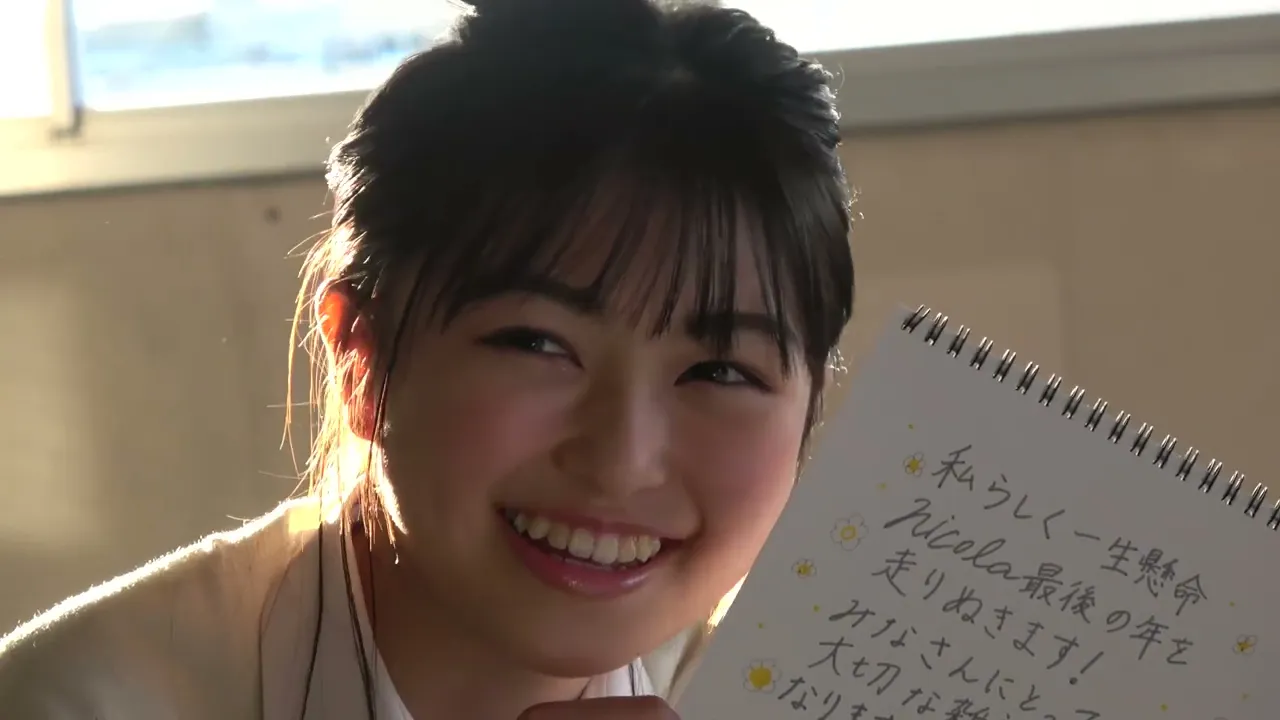 私らしく一生懸命
nicola最後の年を
走りぬきます！
みなさんにとって
大切な
なります